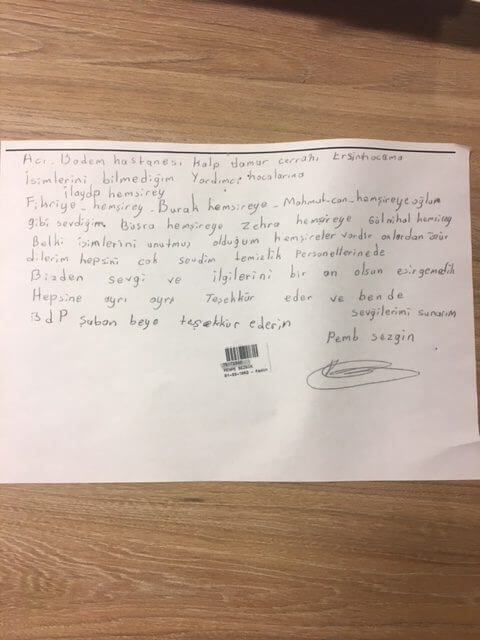 Acı-Badem hastanesi Kalp damar cerrahı Ersinhocama
İsimlerini bilmediğim Yardımcı hocalarına
İlayda hemşirey
Fihriye-hemşirey-Burak hemşireye-Mahmut-can-hemşireye oğlum
gibi sevdiğim Büşra hemşireye Zehra hemşireye Gülnihal hemşirey
Belki isimlerini unutmuş olduğum hemşireler vardır onlardan özür
dilerim hepsini çok sevdim temizlik Personellerinede
Bizden sevgi ve ilgilerini bir an olsun esirgemedile
Hepsine ayrı ayrı Teşehkür eder ve bende
sevgilerimi sunarım
Bdp Şaban beye teşehkür ederin
Pemb sezgin
PEMBE SEZGİN